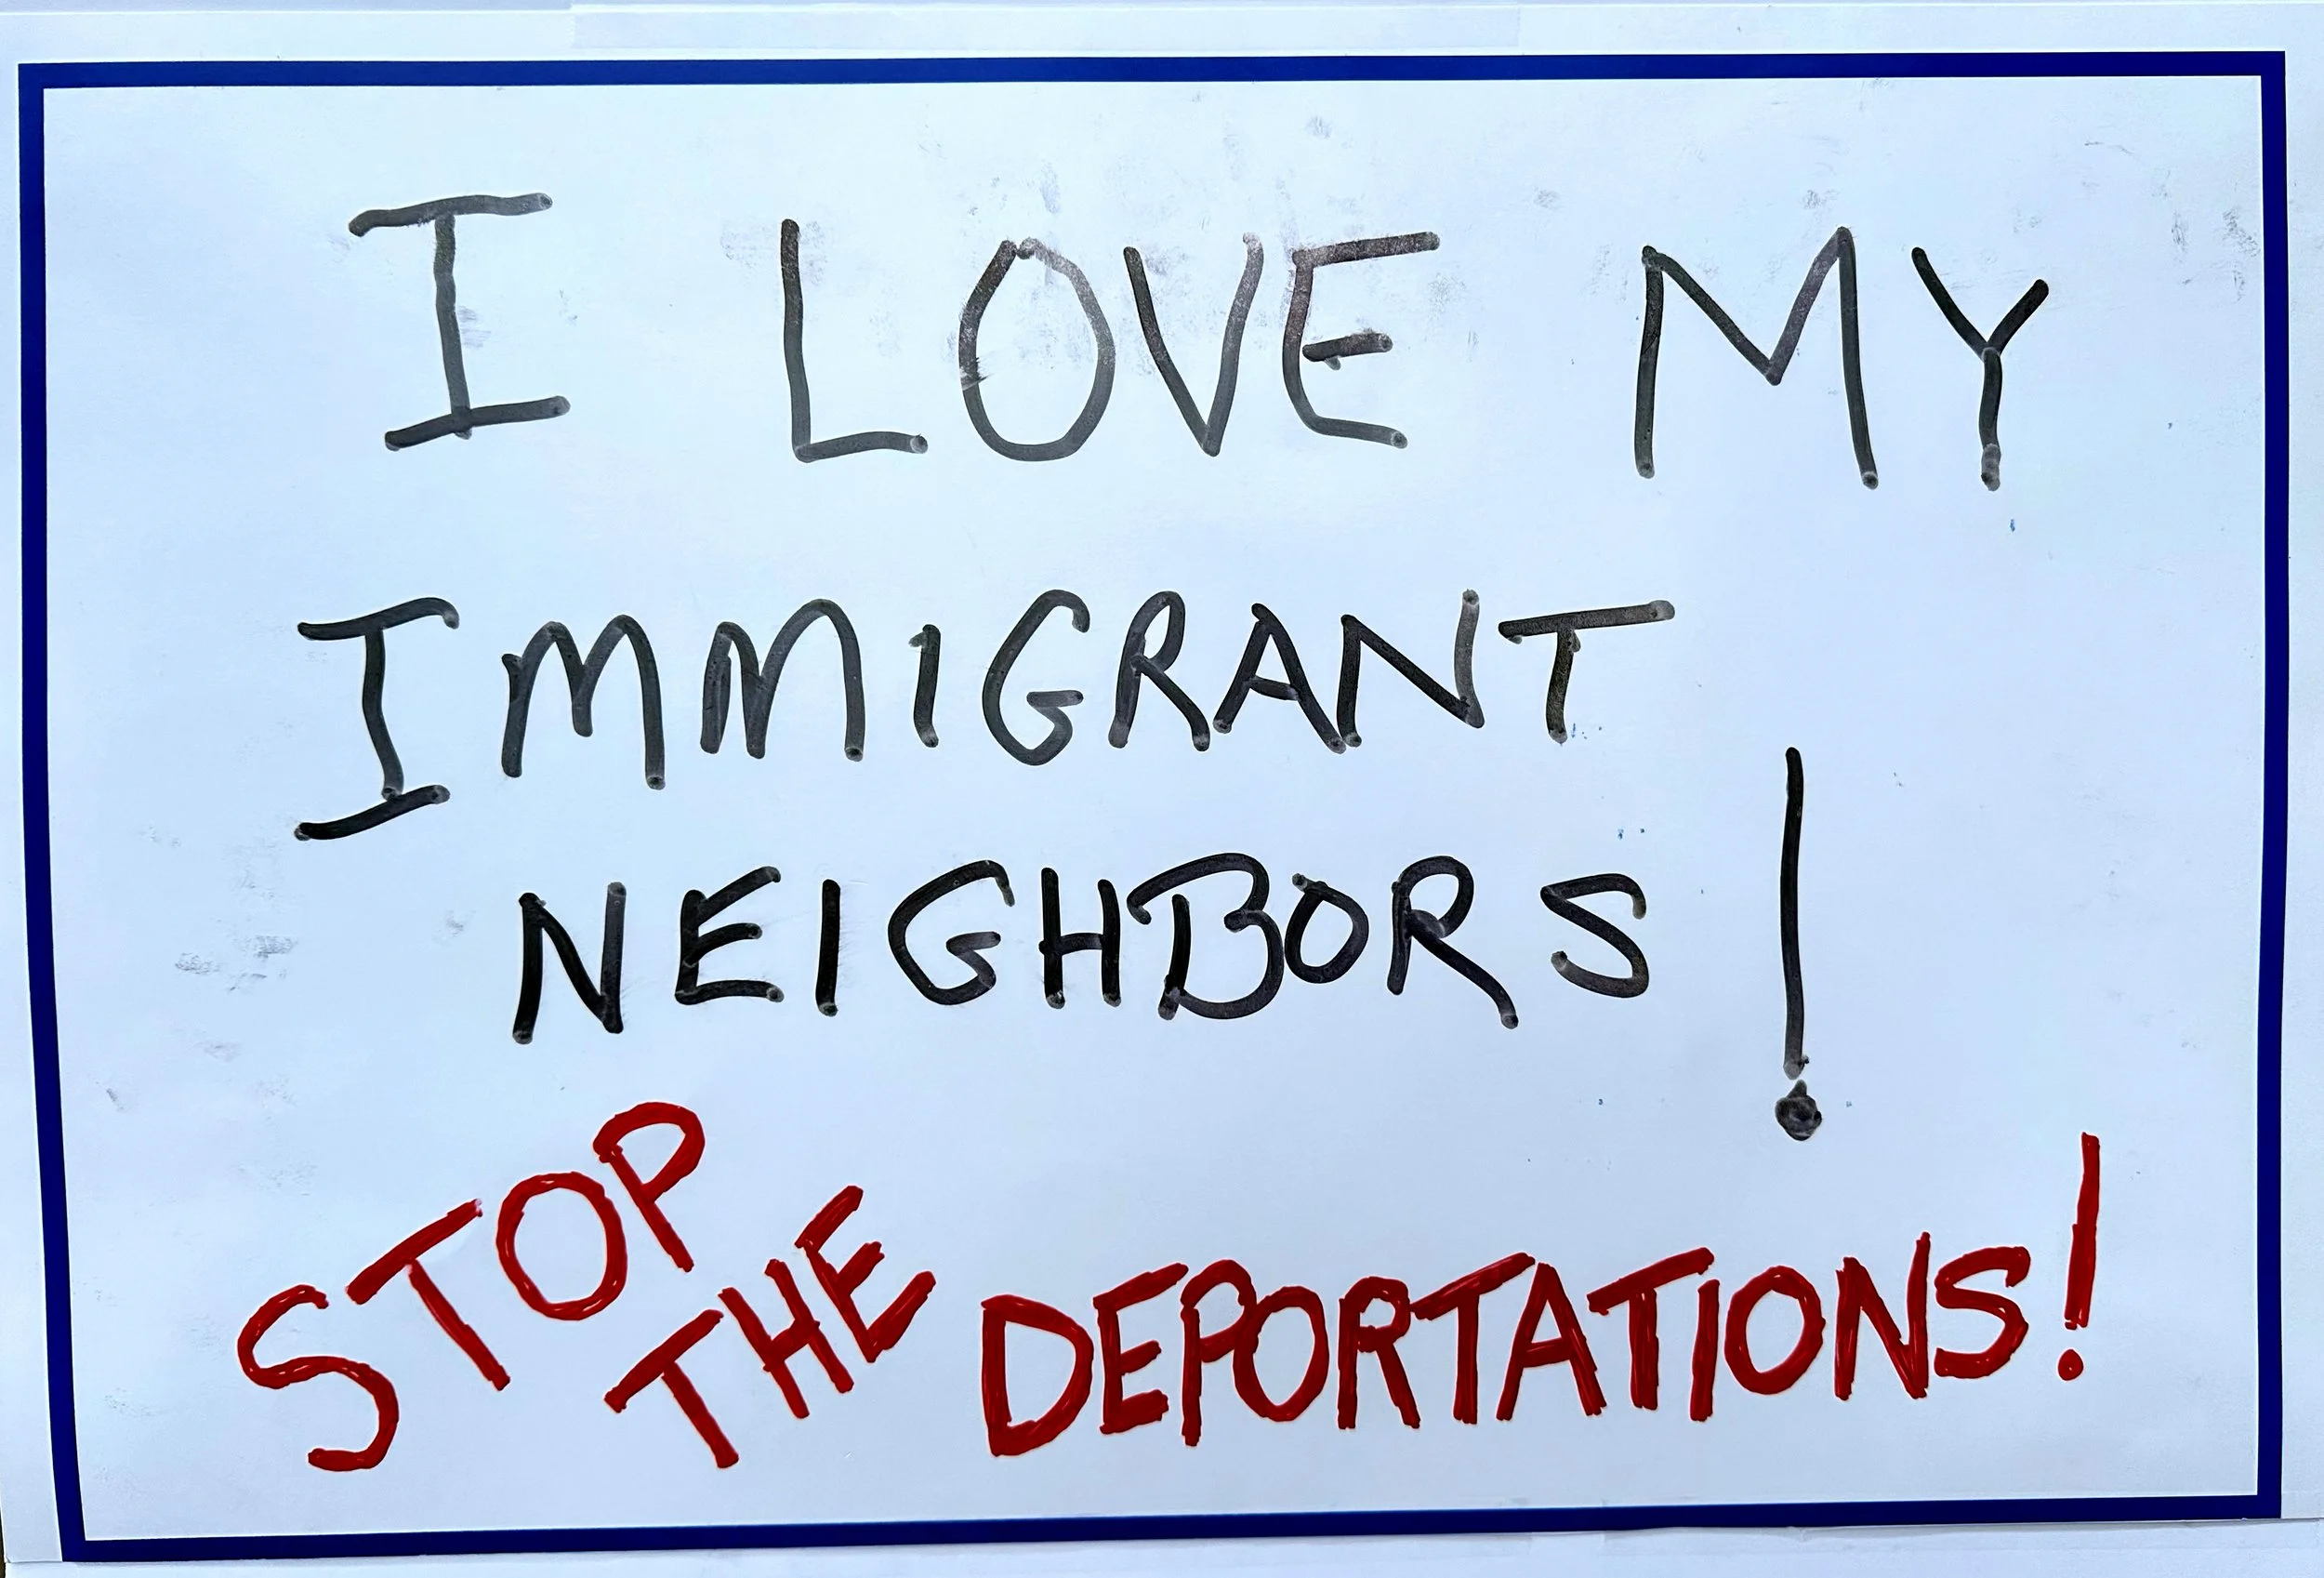 I LOVE MY
IMMIGRANT
NEIGHBORS!
STOP THE DEPORTATIONS!